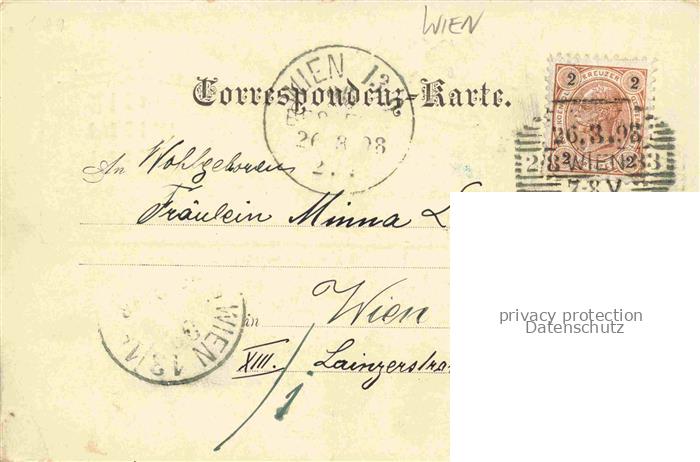 WIEN
WIEN 1/2
26 3 98
2 KREUZER 2
26.3.98
2 WIEN 2
7-8 V
Correspondenz-Karte.
An Wohlgeboren
Fräulein Minna L
in Wien
XIII. Lainzerstra
1/1.
WIEN 13/1
privacy protection
Datenschutz